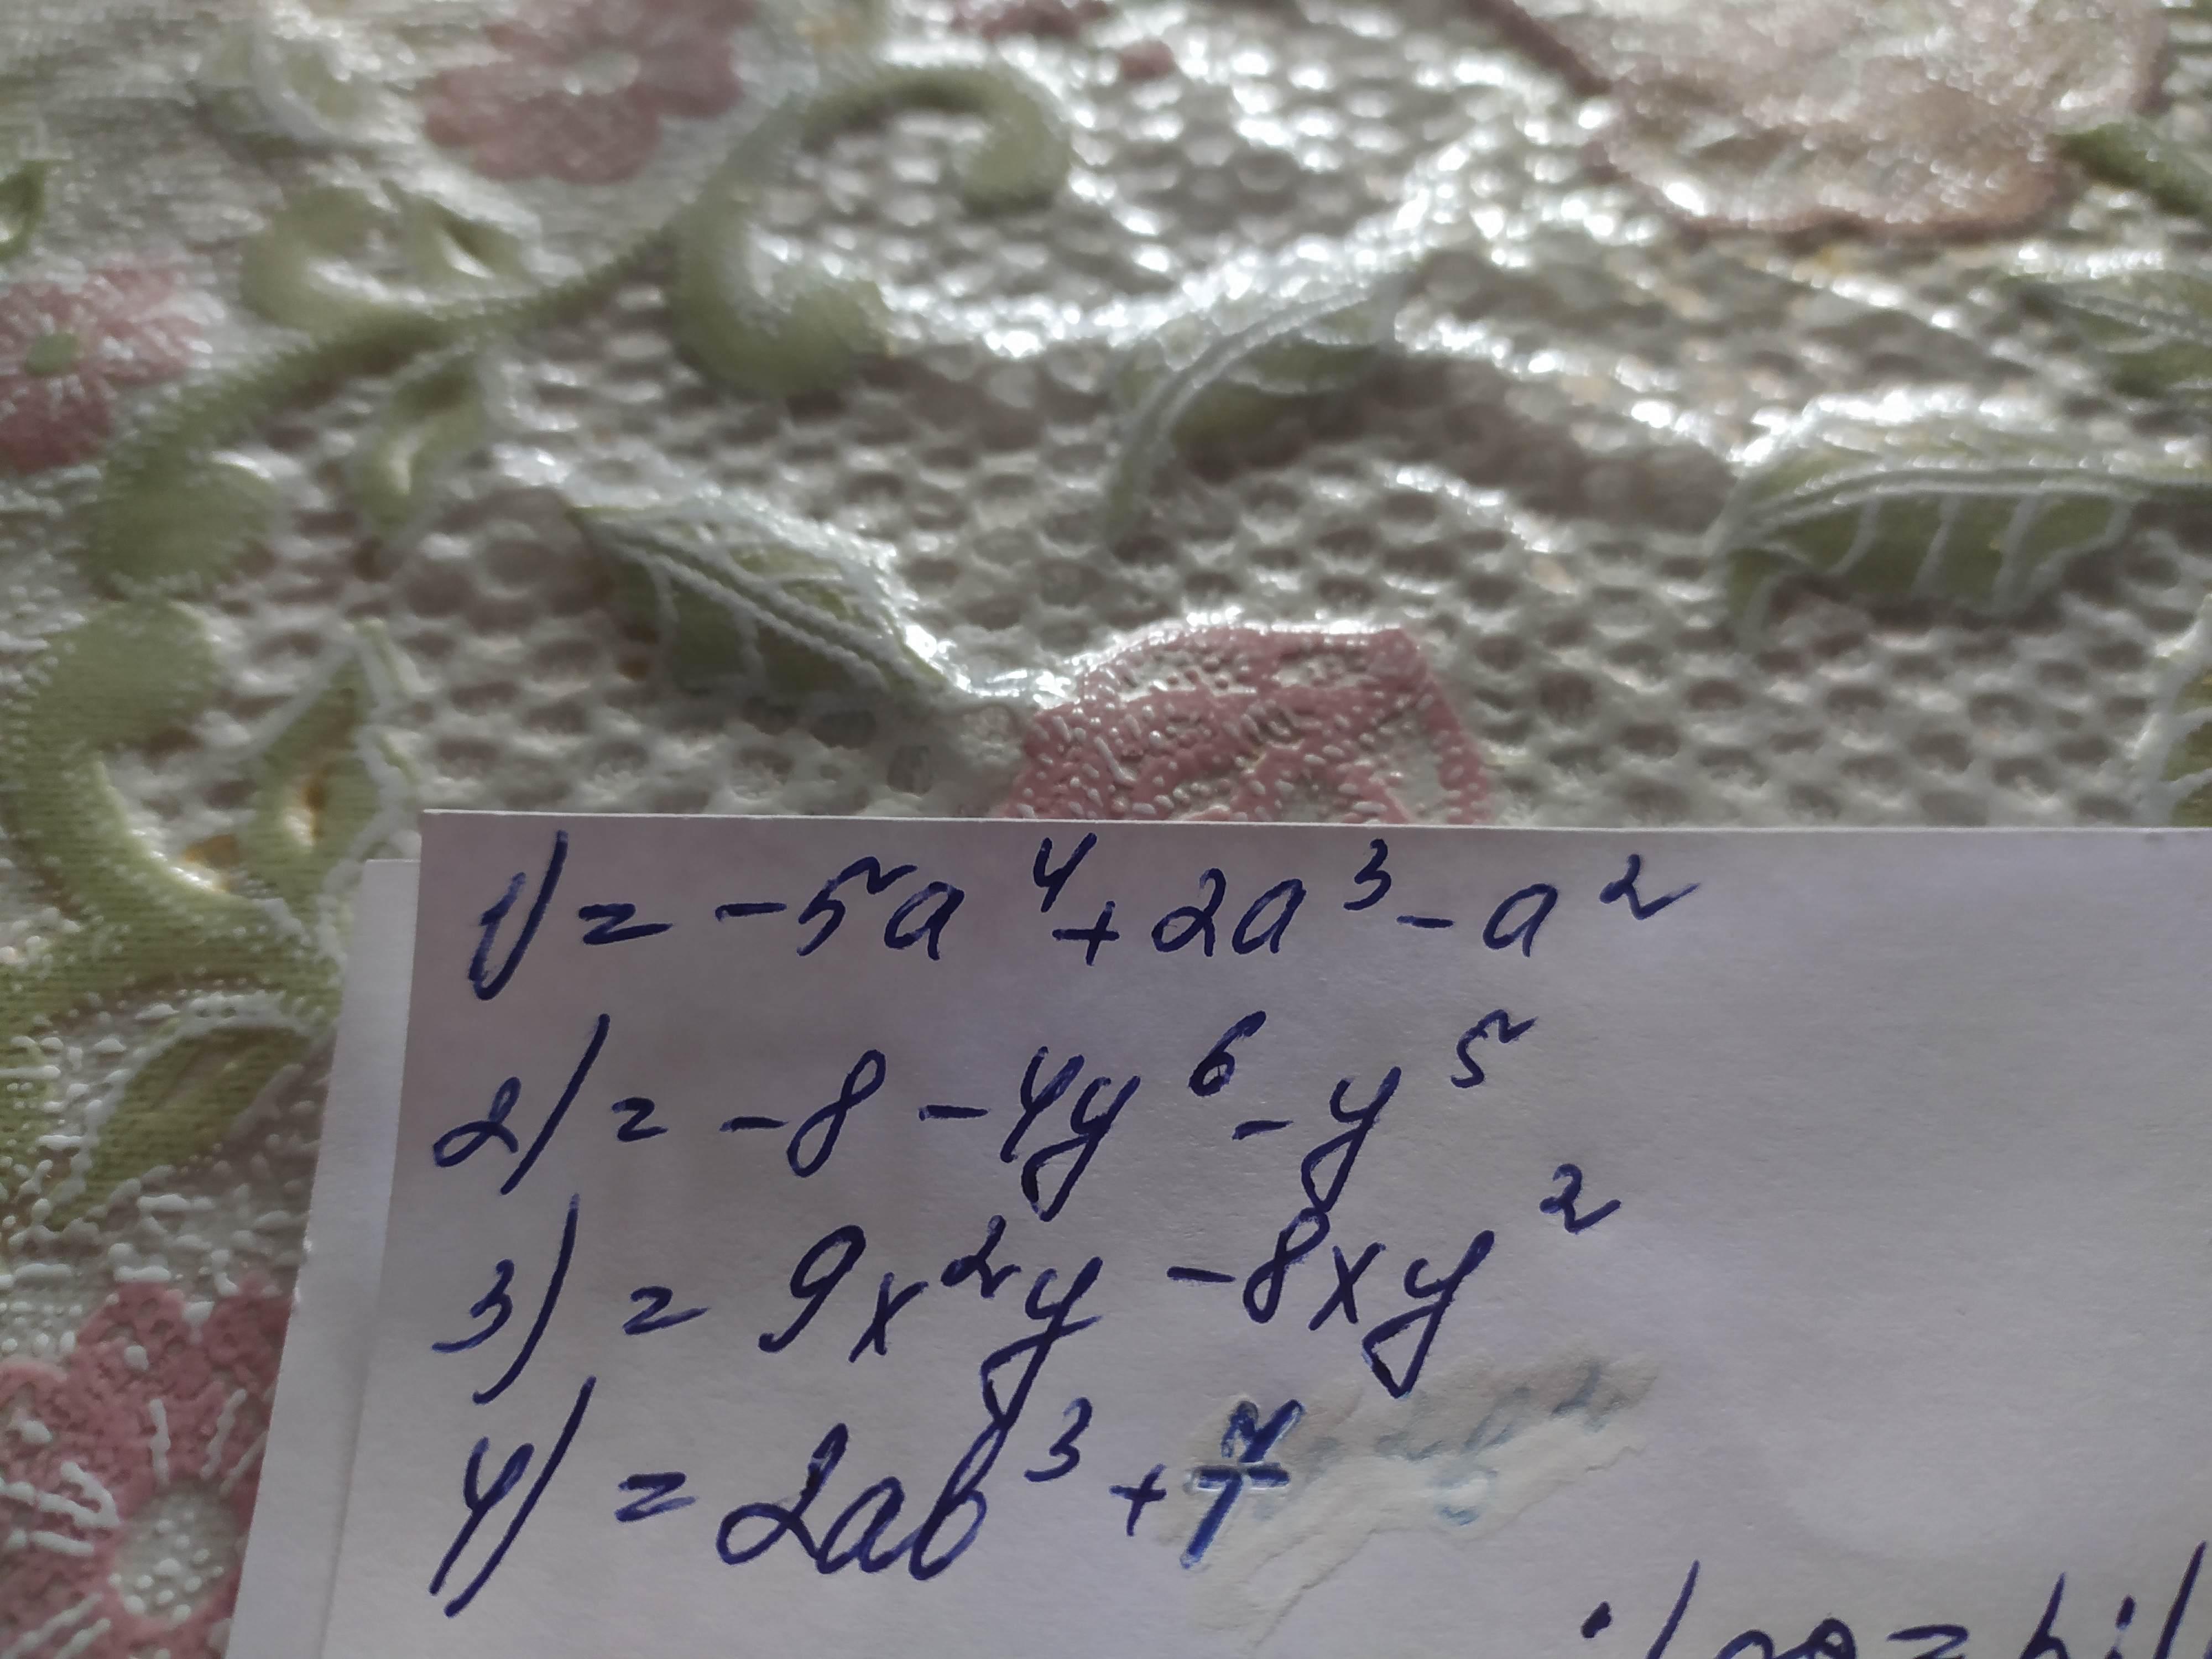 1) = -5a⁴ + 2a³ - a²
2) = -8 - 4y⁶ - y⁵
3) = 9x²y - 8xy²
4) = 2ab³ + 7